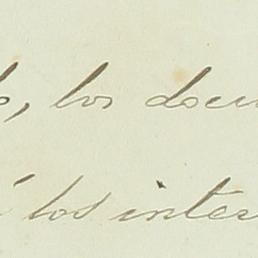 , los docu
á los inter